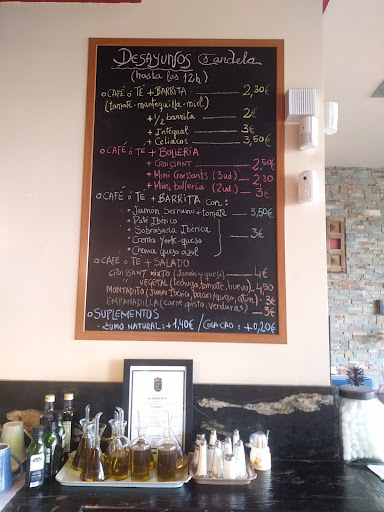 DESAYUNOS Candela
(hasta las 12h)
o CAFÉ ó TÉ + BARRITA — 2,30€
(tomate-mantequilla-miel)
+ 1/2 barrita — 2€
+ Integral — 3€
+ Celiacos — 3,50€
o CAFÉ ó TE + BOLLERIA
+ CROISSANT — 2,50€
+ Mini Croissants (3ud.) — 2,30
+ Mini bolleria (2ud.) — 3€
o CAFÉ ó TE + BARRITA con:
• Jamon Serrano + tomate — 3,50€
• Paté Ibérico
• Sobrasada Ibérica — 3€
• Crema york-queso
• Crema queso azul
o CAFE ó TE + SALADO
CROISSANT MIXTO (Jamon y queso) — 4€
VEGETAL (lechuga, tomate, huevo) — 4,50
MONTADITO (Jamon Iberico, bacon/queso, atún) — 3€
EMPANADILLA (carne, pisto, verduras) — 3€
o SUPLEMENTOS
- ZUMO NATURAL: + 1,40€ / COLACAO: + 0,20€